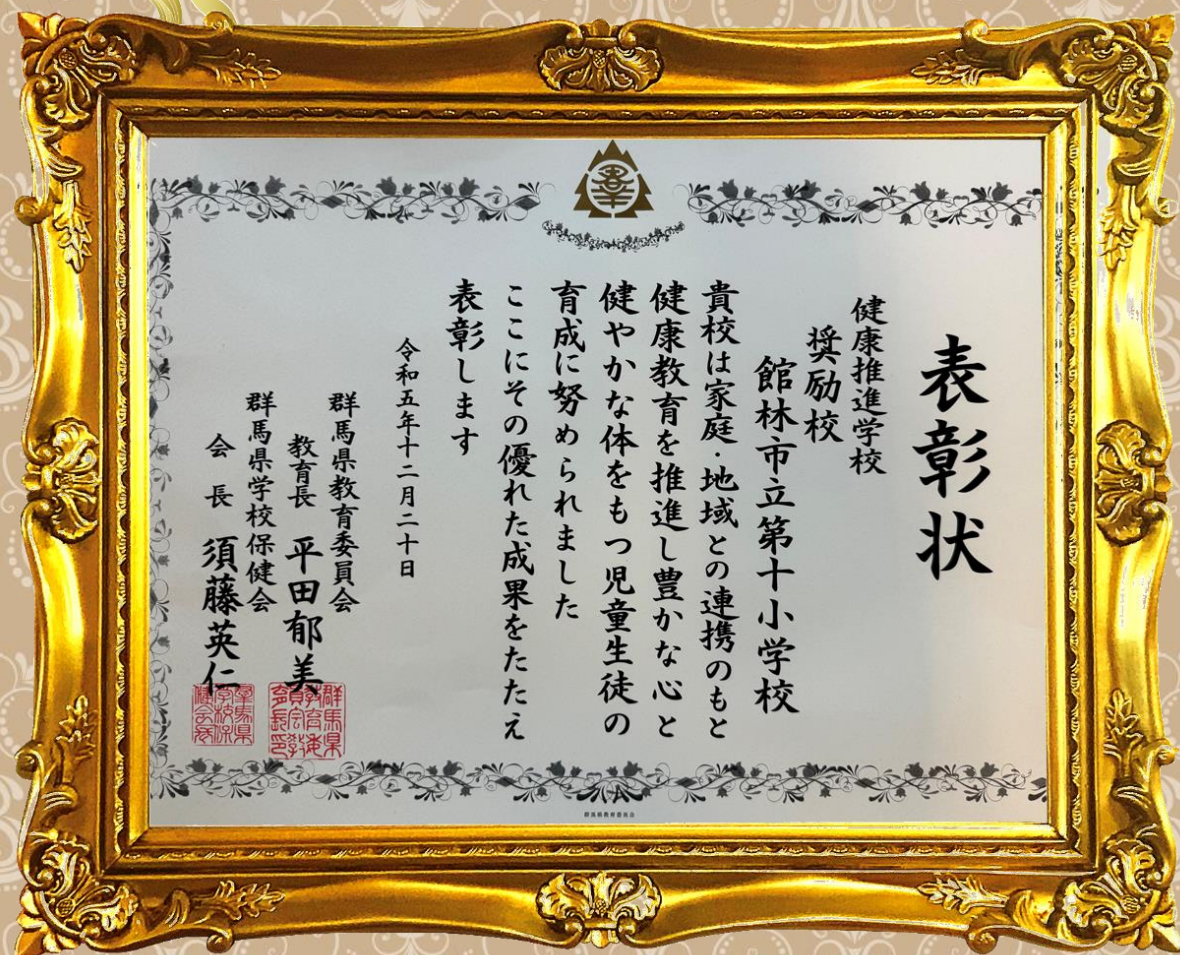 表彰状
健康推進学校
奨励校
館林市立第十小学校
貴校は家庭・地域との連携のもと
健康教育を推進し豊かな心と
健やかな体をもつ児童生徒の
育成に努められました
ここにその優れた成果をたたえ
表彰します
令和五年十二月二十日
群馬県教育委員会
教育長 平田郁美
群馬県学校保健会
会長 須藤英仁
群馬県教育委員会